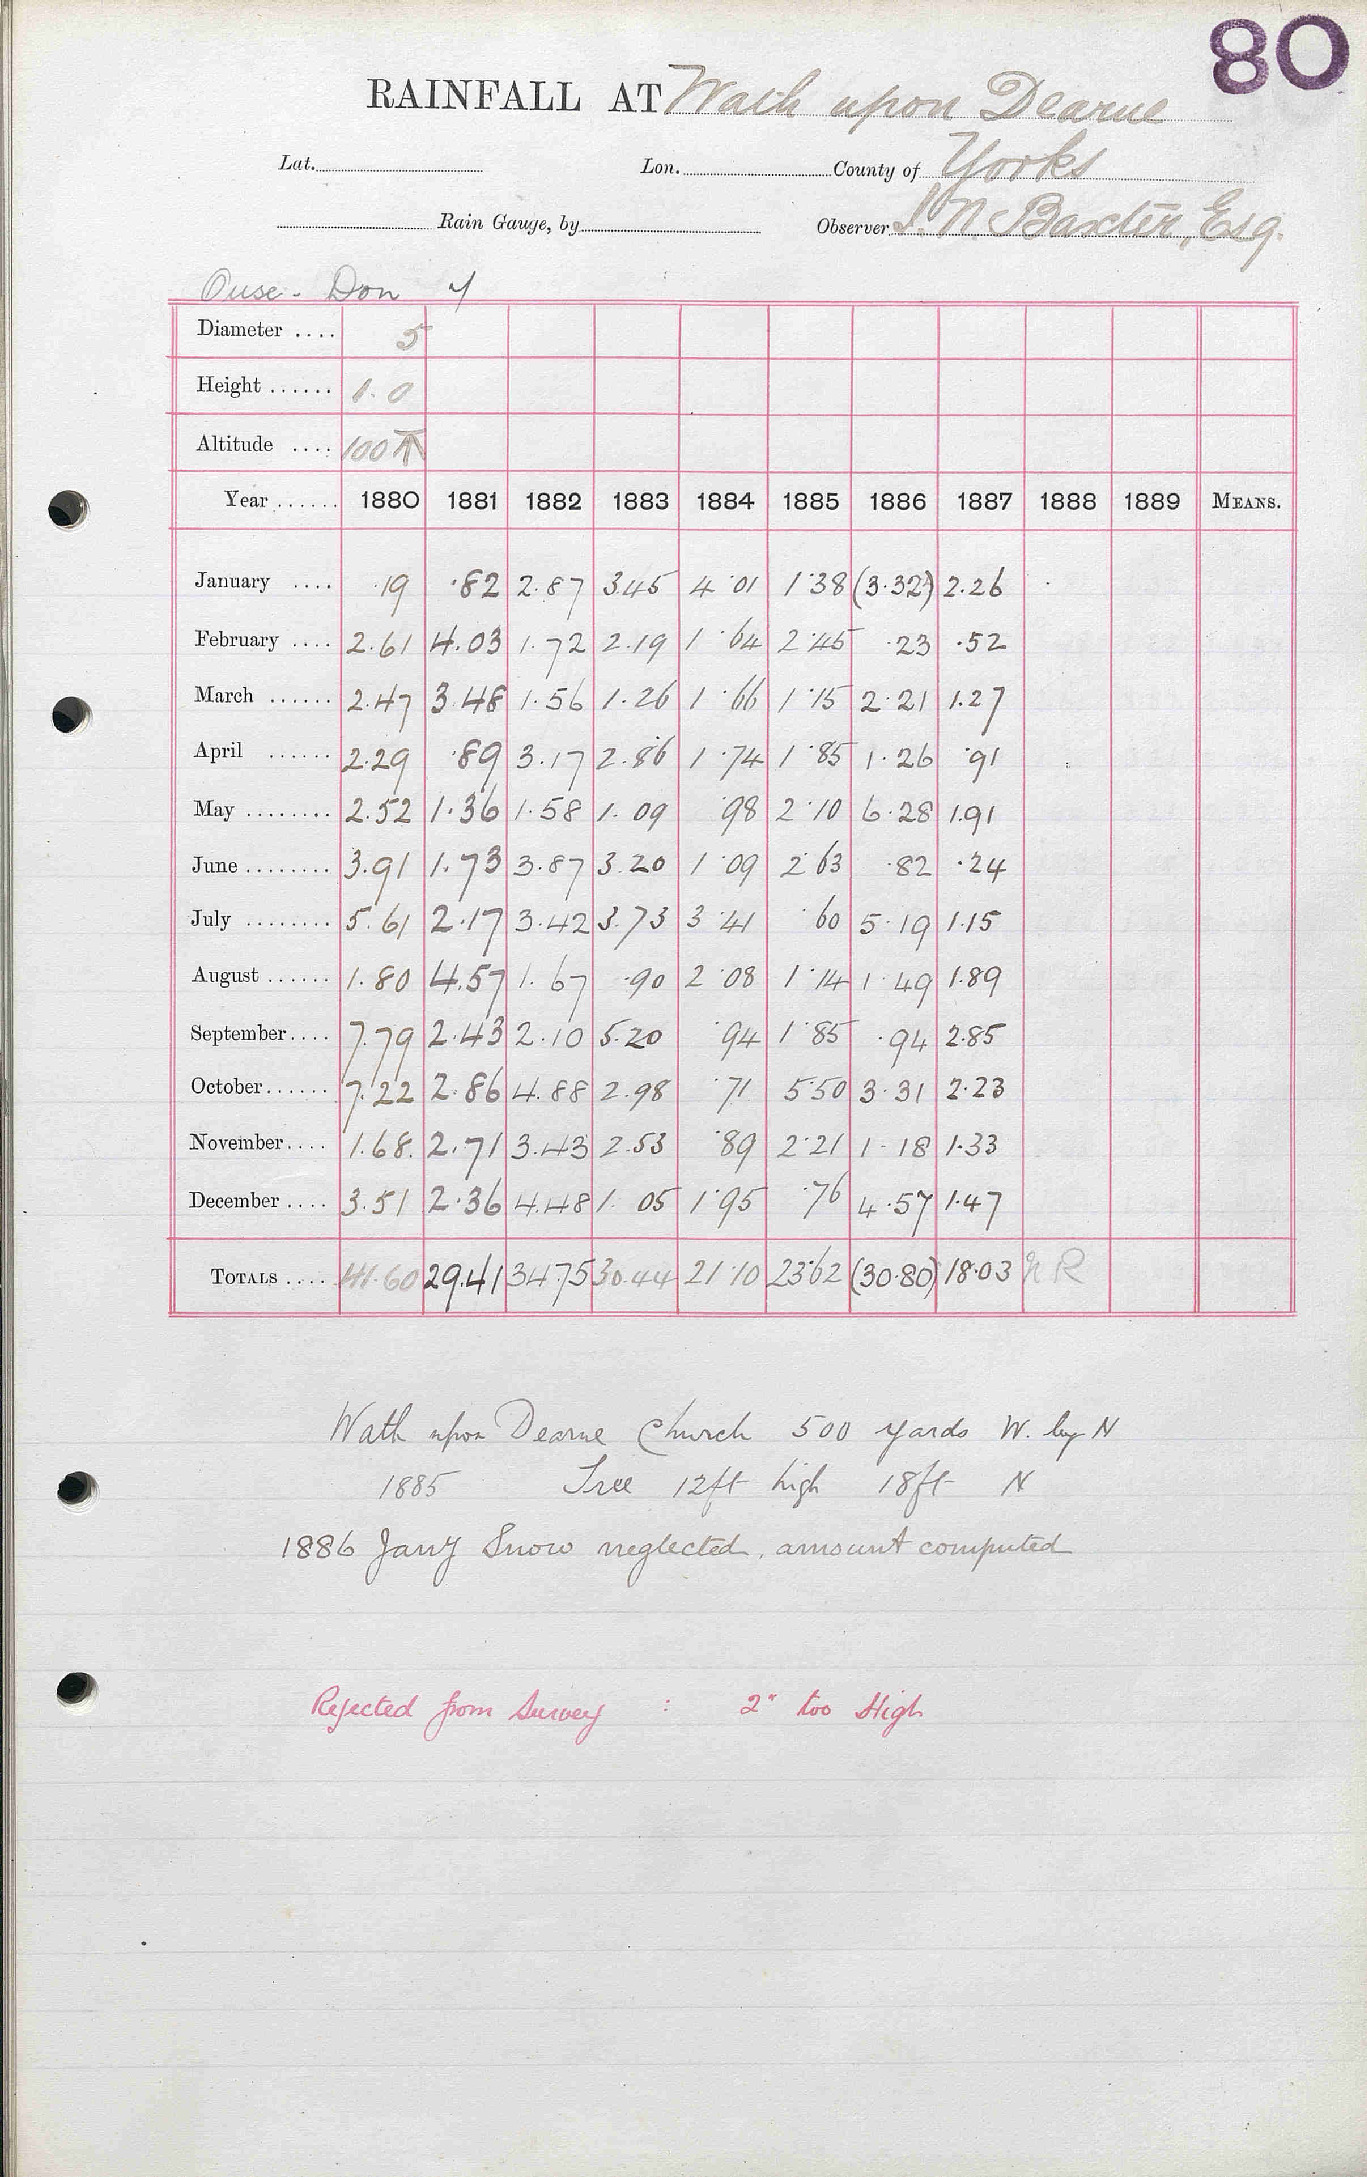 80
RAINFALL AT Wath upon Dearne
Lat. Lon. County of Yorks
Rain Gauge, by Observer J. N. Baxter, Esq.
Ouse - Don Y
Diameter .... 5
Height ...... 1.0
Altitude .... 100
Year ...... 1880 1881 1882 1883 1884 1885 1886 1887 1888 1889 MEANS.
January .... .19 .82 2.87 3.45 4.01 1.38 (3.32) 2.26
February .... 2.61 4.03 1.72 2.19 1.64 2.45 .23 .52
March ...... 2.47 3.48 1.56 1.26 1.66 1.15 2.21 1.27
April ...... 2.29 .89 3.17 2.86 1.74 1.85 1.26 .91
May ........ 2.52 1.36 1.58 1.09 .98 2.10 6.28 1.91
June ........ 3.91 1.73 3.87 3.20 1.09 2.63 .82 .24
July ........ 5.61 2.17 3.42 3.73 3.41 .60 5.19 1.15
August ...... 1.80 4.57 1.67 .90 2.08 1.14 1.49 1.89
September .... 7.79 2.43 2.10 5.20 .94 1.85 .94 2.85
October ...... 7.22 2.86 4.88 2.98 .71 5.50 3.31 2.23
November .... 1.68. 2.71 3.43 2.53 .89 2.21 1.18 1.33
December .... 3.51 2.36 4.48 1.05 1.95 .76 4.57 1.47
TOTALS .... 41.60 29.41 34.75 30.44 21.10 23.62 (30.80) 18.03 NR
Wath upon Dearne Church 500 yards W. by N
1885 Tree 12ft high 18ft N
1886 Jany Snow neglected, amount computed
Rejected from Survey : 2" too High